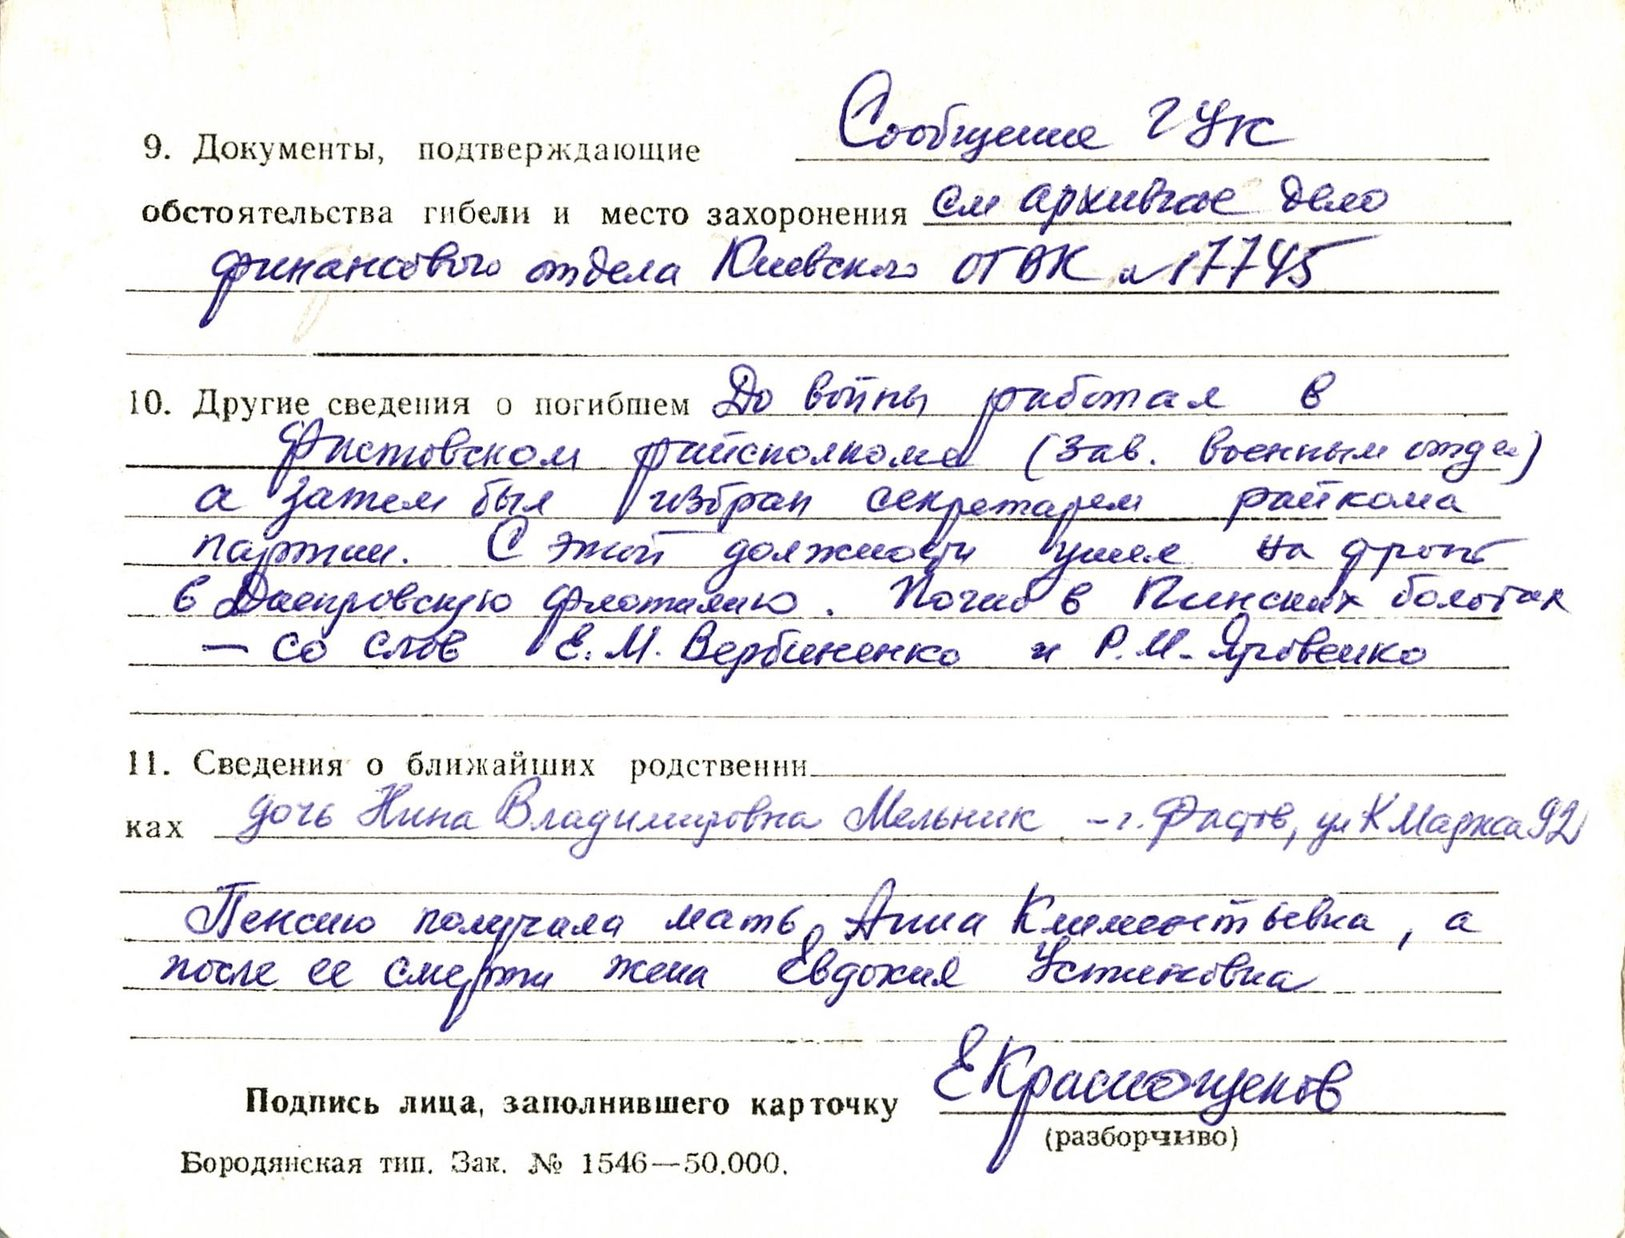 9. Документы, подтверждающие Сообщение ГУК
обстоятельства гибели и место захоронения см архивное дело
финансового отдела Киевского ОГВК № 17745
10. Другие сведения о погибшем До войны работал в
Фастовском райисполкоме (зав. военным отдел)
а затем был избран секретарем райкома
партии. С этой должности ушел на фронт
в Днепровскую флотилию. Погиб в Пинских болотах
— со слов Е. М. Вербиненко и Р. М. Яровенко
11. Сведения о ближайших родственни
ках дочь Нина Владимировна Мельник – г. Фастов, ул К Маркса 92
Пенсию получала мать Анна Климентьевна, а
после ее смерти жена Евдокия Устиновна
Подпись лица, заполнившего карточку ЕКраснощеков
(разборчиво)
Бородянская тип. Зак. № 1546—50.000.